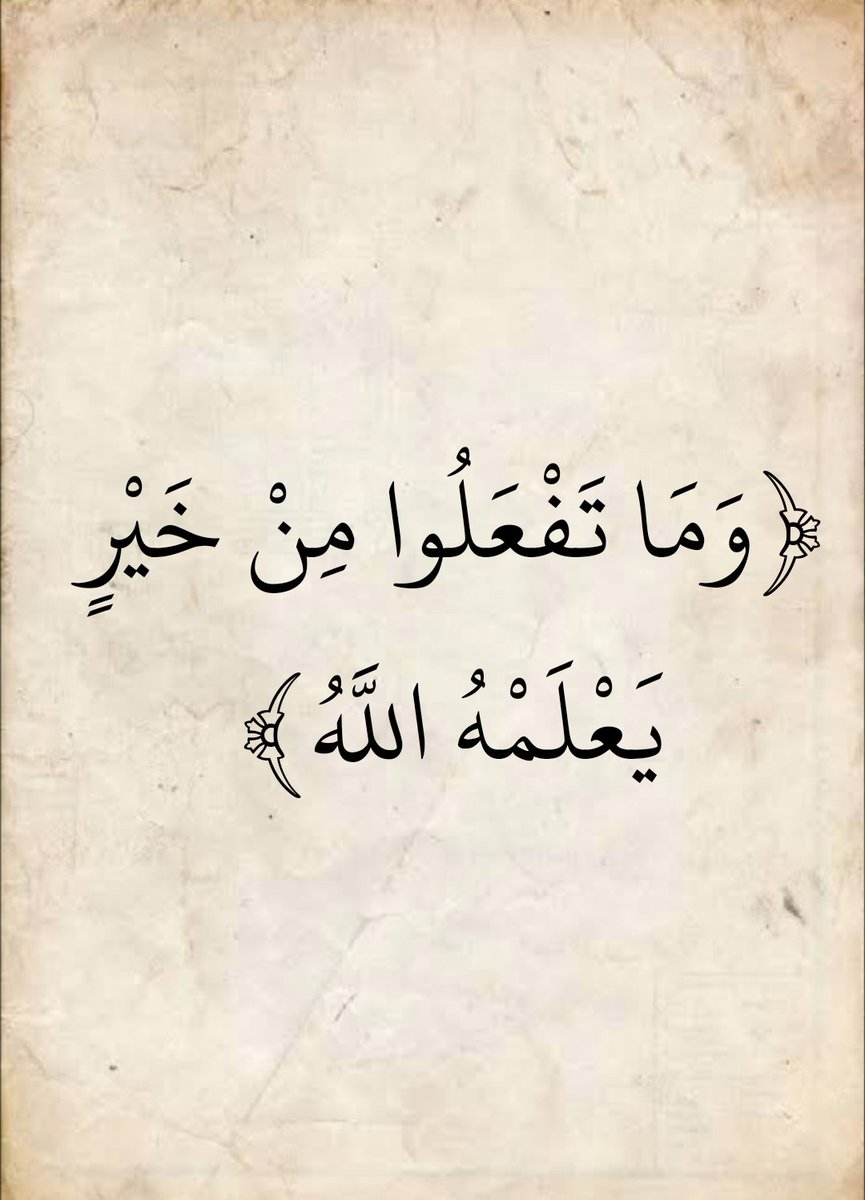 ﴿وَمَا تَفْعَلُوا مِنْ خَيْرٍ
يَعْلَمْهُ اللَّهُ﴾